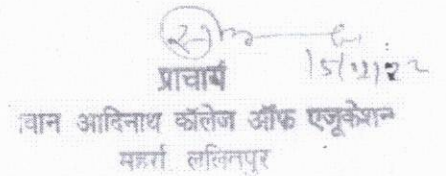 15/9/22
प्राचार्य
वान आदिनाथ कॉलेज ऑफ एजूकेशन
महर्रा ललितपुर